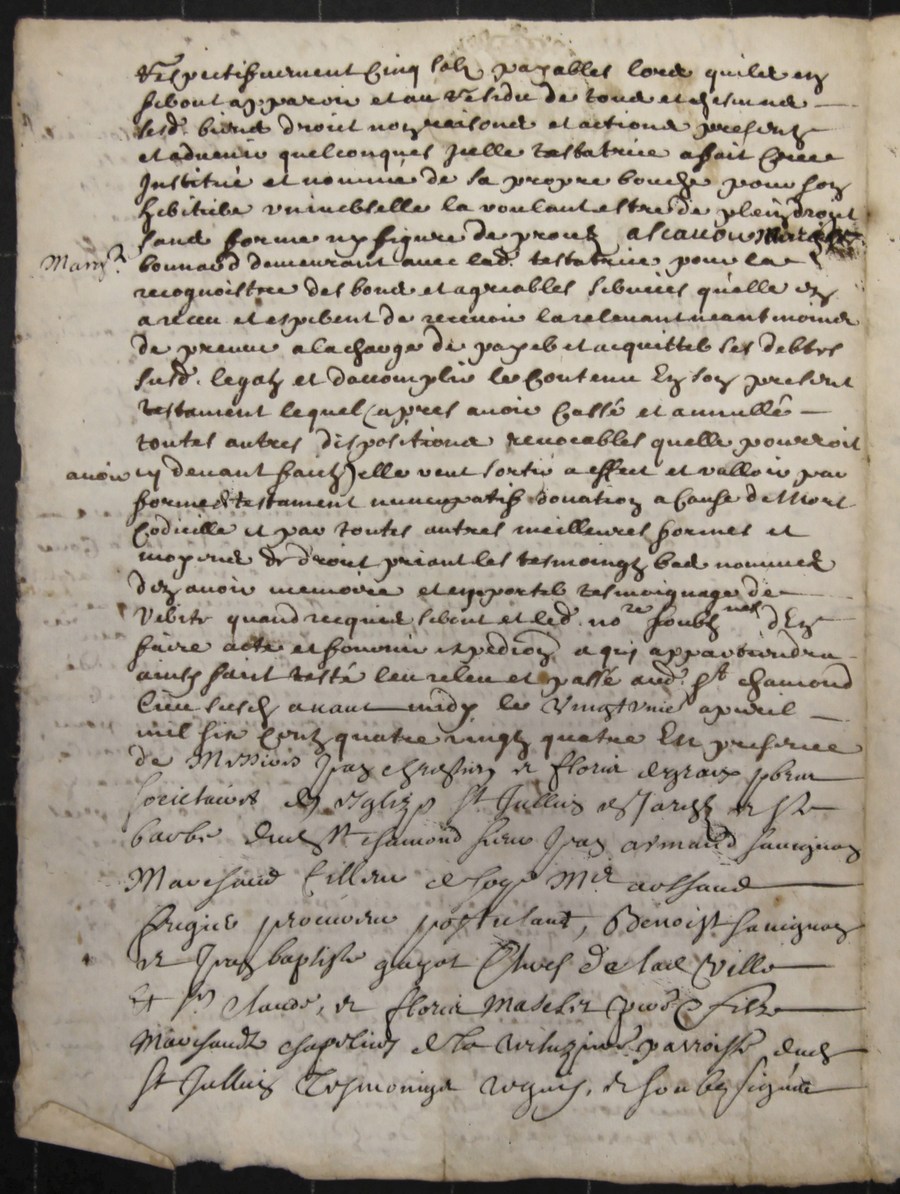 respectifvement cinq solz payables lors quilz en
feront apparoir et au residu de tous et chescuns
sesd. biens droit noms raisons et actions presentz
et advenir quelconques jcelle testatrice a fait creee
jnstitué et nommé de sa propre bouche pour son
heritiere universelle la voulant estre de plein droit
sans forme ny figure de proces a
Marg.te bonnard demeurant avec lad. testatrice pour la
recognoistre des bons et agreables services quelle en
a receu et espere de recevoir la relevant neantmoins
de preuve a la charge de payer et acquitter ses debtes
susd. legatz et daccomplir le contenu en son present
testament lequel (apres avoir cassé et annullé
toutes autres dispositions revocables quelle pourroit
avoir cy devant faict) elle veut sortir a effect et valloir par
forme de testament nuncupatif donation a cause de mort
codicille et par toutes autres meilleures formes et
moyens de droict priant les tesmoingz bas nommes
den avoir memoire et en porter tesmoignage de
verité quand requis seront et led. no.re soubz.né den
faire acte et fournir expedi.on a qui appartiendra
ainsy faict testé leu releu et passé aud. S.t chamond
lieu susd. avant midy le vingt unie apvril
mil six centz quatre vingtz quatre en presence
de Messires Jean chrestien et floris degraix pbres
societaires en leglize S.t Jullien et Ste
barbe dud. St chamond sieur Jean armand savignon
Marchand de soye M.e
procureur postulant, Benoist savignon
et Jean baptiste guyot Clercs de lad. ville
et S.r claude, et floris filz
Marchandz chapeliers de la parroisse dud.
St Jullien Tesmoings requis, et soubzsignés